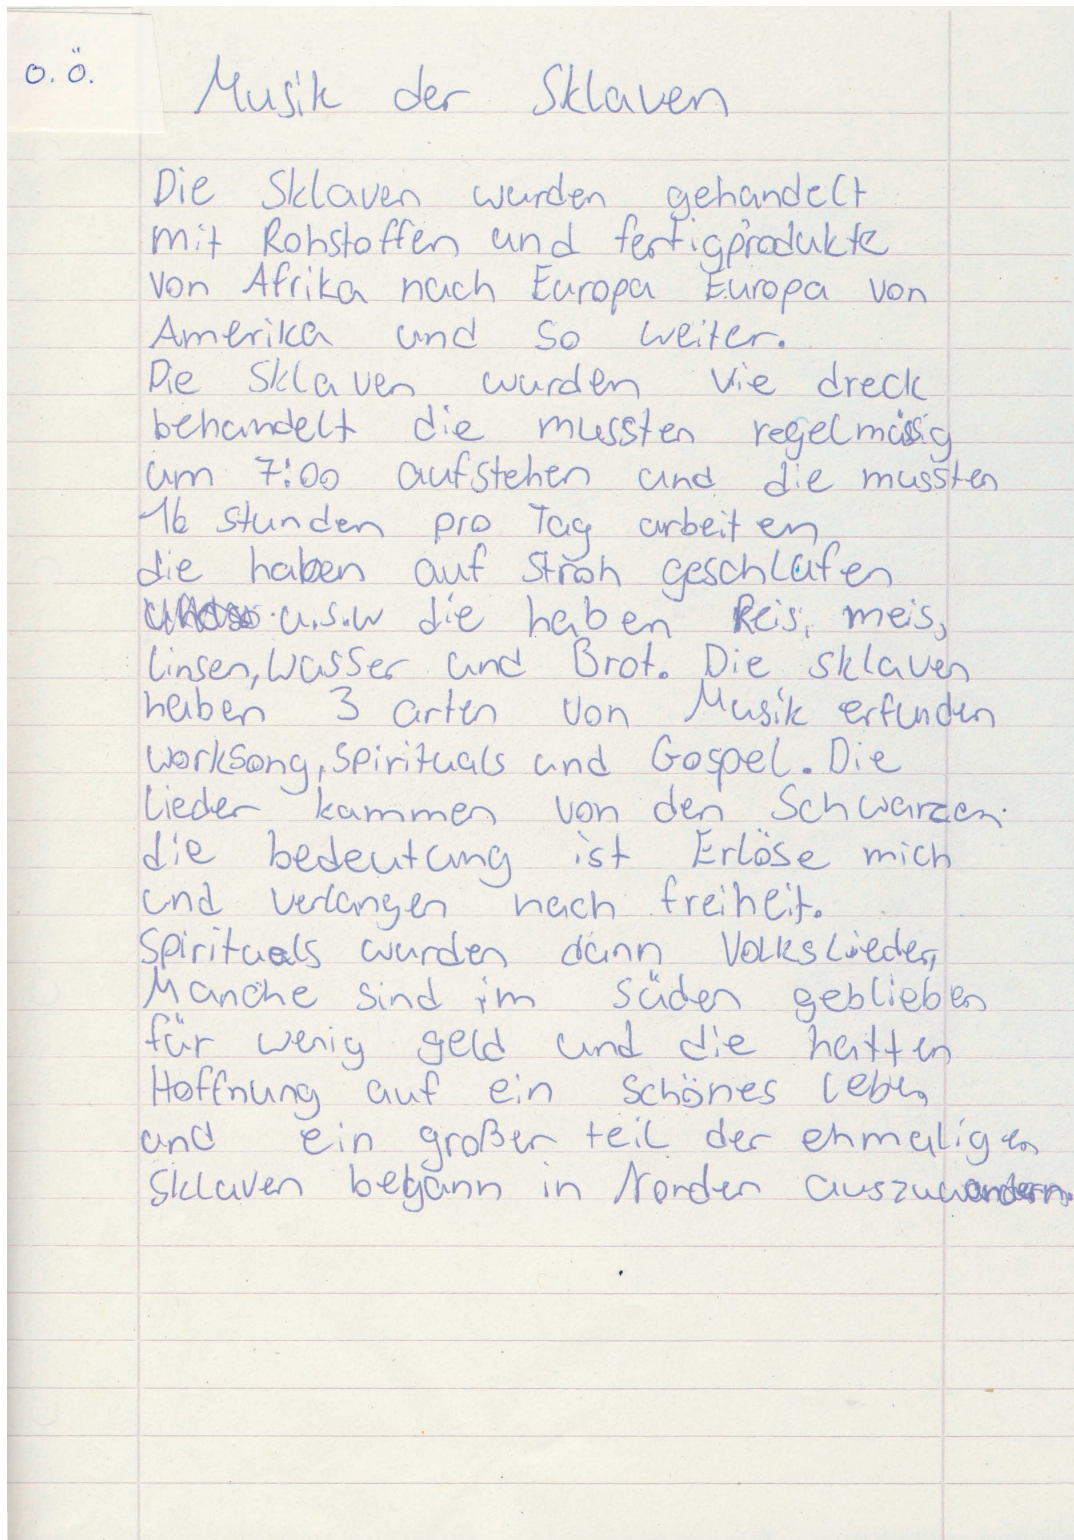 O. Ö.
Musik der Sklaven
Die Sklaven wurden gehandelt
mit Rohstoffen und fertigprodukte
von Afrika nach Europa Europa von
Amerika und so weiter.
Die Sklaven wurden vie dreck
behandelt die mussten regelmässig
um 7:00 aufstehen und die mussten
16 stunden pro Tag arbeiten
die haben auf Stroh geschlafen
u.s.w die haben Reis, meis,
linsen, Wasser und Brot. Die sklaven
haben 3 arten von Musik erfunden
worksong, spirituals und Gospel. Die
lieder kammen von den Schwarzen.
die bedeutung ist Erlöse mich
und verlangen nach freiheit.
spirituals wurden dann Volkslieder,
Manche sind im Süden geblieben
für wenig geld und die hatten
Hoffnung auf ein schönes leben
und ein großer teil der ehmaligen
sklaven begann in Norden auszuwandern.